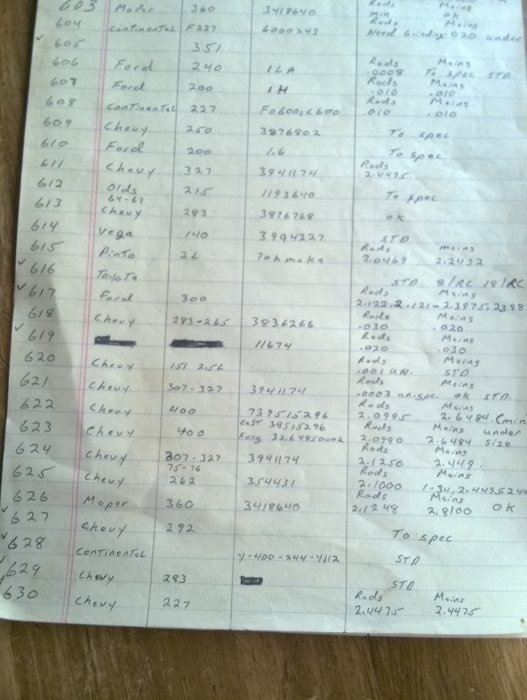 603 Mopar 360 3418640 Rods Mains
min ok
604 Continental F227 6000243 Rods Mains
Need Grinding .020 under
605 351
606 Ford 240 1LA Rods Mains
.0008 To spec STD
607 Ford 200 1H Rods Mains
.010 .010
608 Continental 227 F0600, C600 Rods Mains
.010 .010
609 Chevy 250 3876802 To spec
610 Ford 200 1.6 To spec
611 Chevy 327 3941174 Rods
2.4475
612 Olds 215 1193640 To spec
613 64-67
Chevy 283 3876768 OK
614 Vega 140 3994227 STD
615 Pinto 2L 70hmaka Rods Mains
2.0469 2.2432
616 Toyota STD 8/RC 18/RC
617 Ford 300 Rods Mains
2.122-2.121-2.3975,2398
618 Chevy 283-265 3836266 Rods Mains
.030 .020
619 11674 Rods Mains
.020 .030
620 Chevy 151 2.5L Rods Mains
.001 un. STD
621 Chevy 307-327 3941174 Rods Mains
.0003 un.spec ok STD.
622 Chevy 400 739515296 Rods Mains
2.0995 2.6484 (min
623 Chevy 400 Cast 39515296 Rods Mains under
Forg 3264950002 2.0990 2.6484 size
624 Chevy 307-327 3941174 Rods Mains
2.1250 2.449.
625 Chevy 75-76 262 354431 Rods Mains
2.1000 1-34, 2.4495
626 Mopar 360 3418640 Rods Mains
2.1248 2.8100 OK
627 Chevy 292 To spec
628 Continental Y-400-244-Y112 STD
629 Chevy 283 STD
630 Chevy 227 Rods Mains
2.4475 2.4475